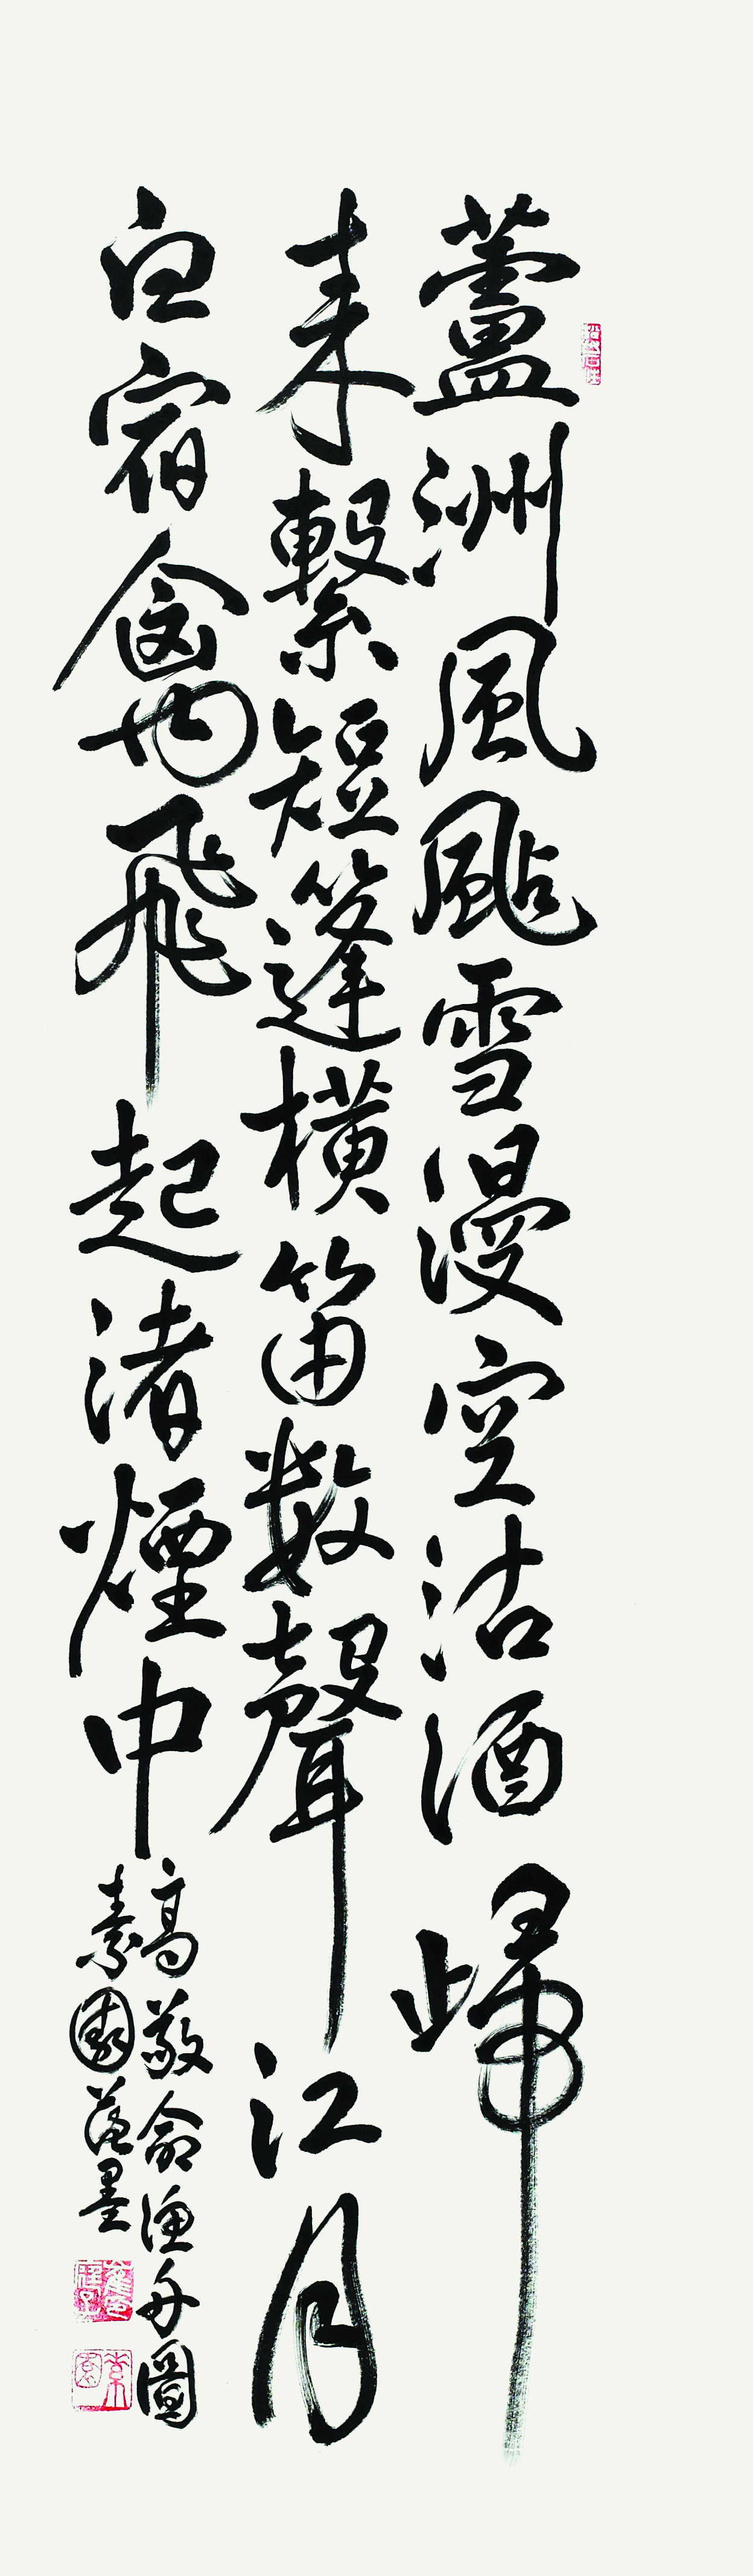 蘆洲風颭雪漫空沽酒歸
來繫短篷橫笛數聲江月
白宿禽飛起渚煙中
高敬命漁舟圖
素園 墨
素園